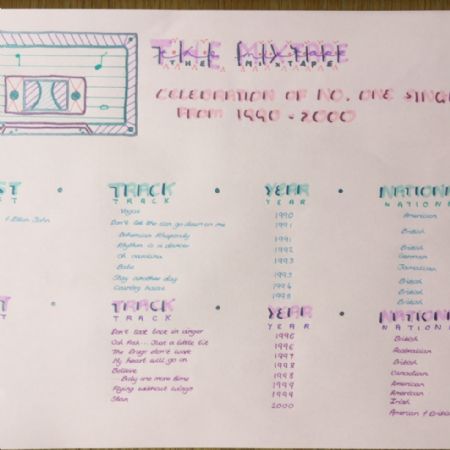 THE MIXTAPE
THE MIXTAPE
CELEBRATION OF NO. ONE SINGL
FROM 1990 - 2000
ST TRACK YEAR NATIONA
ST TRACK YEAR NATIONA
Vogue 1990 American
& Elton John Don't let the sun go down on me 1991 British
Bohemian Rhapsody 1991 British
Rhythm is a dancer 1992 German
Oh carolina Jamaican
Babe 1993 British
Stay another day 1994 British
Country house 1995 British
T TRACK YEAR NATIONA
TRACK YEAR NATIONA
Don't look back in anger 1996 British
Ooh Aah... Just a little bit 1996 Australian
The Drugs don't work 1997 British
My heart will go on 1998 Canadian
Believe 1998 American
Baby one more time 1999 American
Flying without wings 1999 Irish
Stan 2000 American & British